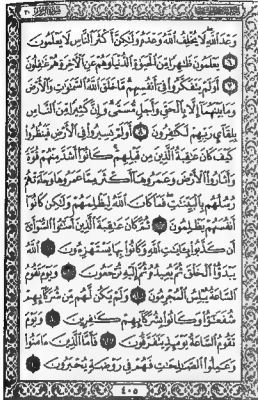 وَعْدَ اللَّهِ لَا يُخْلِفُ اللَّهُ وَعْدَهُ وَلَٰكِنَّ أَكْثَرَ النَّاسِ لَا يَعْلَمُونَ
٦ يَعْلَمُونَ ظَاهِرًا مِنَ الْحَيَاةِ الدُّنْيَا وَهُمْ عَنِ الْآخِرَةِ هُمْ غَافِلُونَ
٧ أَوَلَمْ يَتَفَكَّرُوا فِي أَنْفُسِهِمْ مَا خَلَقَ اللَّهُ السَّمَاوَاتِ وَالْأَرْضَ
وَمَا بَيْنَهُمَا إِلَّا بِالْحَقِّ وَأَجَلٍ مُسَمًّى وَإِنَّ كَثِيرًا مِنَ النَّاسِ
بِلِقَاءِ رَبِّهِمْ لَكَافِرُونَ ٨ أَوَلَمْ يَسِيرُوا فِي الْأَرْضِ فَيَنْظُرُوا
كَيْفَ كَانَ عَاقِبَةُ الَّذِينَ مِنْ قَبْلِهِمْ كَانُوا أَشَدَّ مِنْهُمْ قُوَّةً
وَأَثَارُوا الْأَرْضَ وَعَمَرُوهَا أَكْثَرَ مِمَّا عَمَرُوهَا وَجَاءَتْهُمْ
رُسُلُهُمْ بِالْبَيِّنَاتِ فَمَا كَانَ اللَّهُ لِيَظْلِمَهُمْ وَلَٰكِنْ كَانُوا
أَنْفُسَهُمْ يَظْلِمُونَ ٩ ثُمَّ كَانَ عَاقِبَةَ الَّذِينَ أَسَاءُوا السُّوأَىٰ
أَنْ كَذَّبُوا بِآيَاتِ اللَّهِ وَكَانُوا بِهَا يَسْتَهْزِئُونَ ١٠ اللَّهُ
يَبْدَأُ الْخَلْقَ ثُمَّ يُعِيدُهُ ثُمَّ إِلَيْهِ تُرْجَعُونَ ١١ وَيَوْمَ تَقُومُ
السَّاعَةُ يُبْلِسُ الْمُجْرِمُونَ ١٢ وَلَمْ يَكُنْ لَهُمْ مِنْ شُرَكَائِهِمْ
شُفَعَاءُ وَكَانُوا بِشُرَكَائِهِمْ كَافِرِينَ ١٣ وَيَوْمَ
تَقُومُ السَّاعَةُ يَوْمَئِذٍ يَتَفَرَّقُونَ ١٤ فَأَمَّا الَّذِينَ آمَنُوا
وَعَمِلُوا الصَّالِحَاتِ فَهُمْ فِي رَوْضَةٍ يُحْبَرُونَ ١٥
٤٠٥